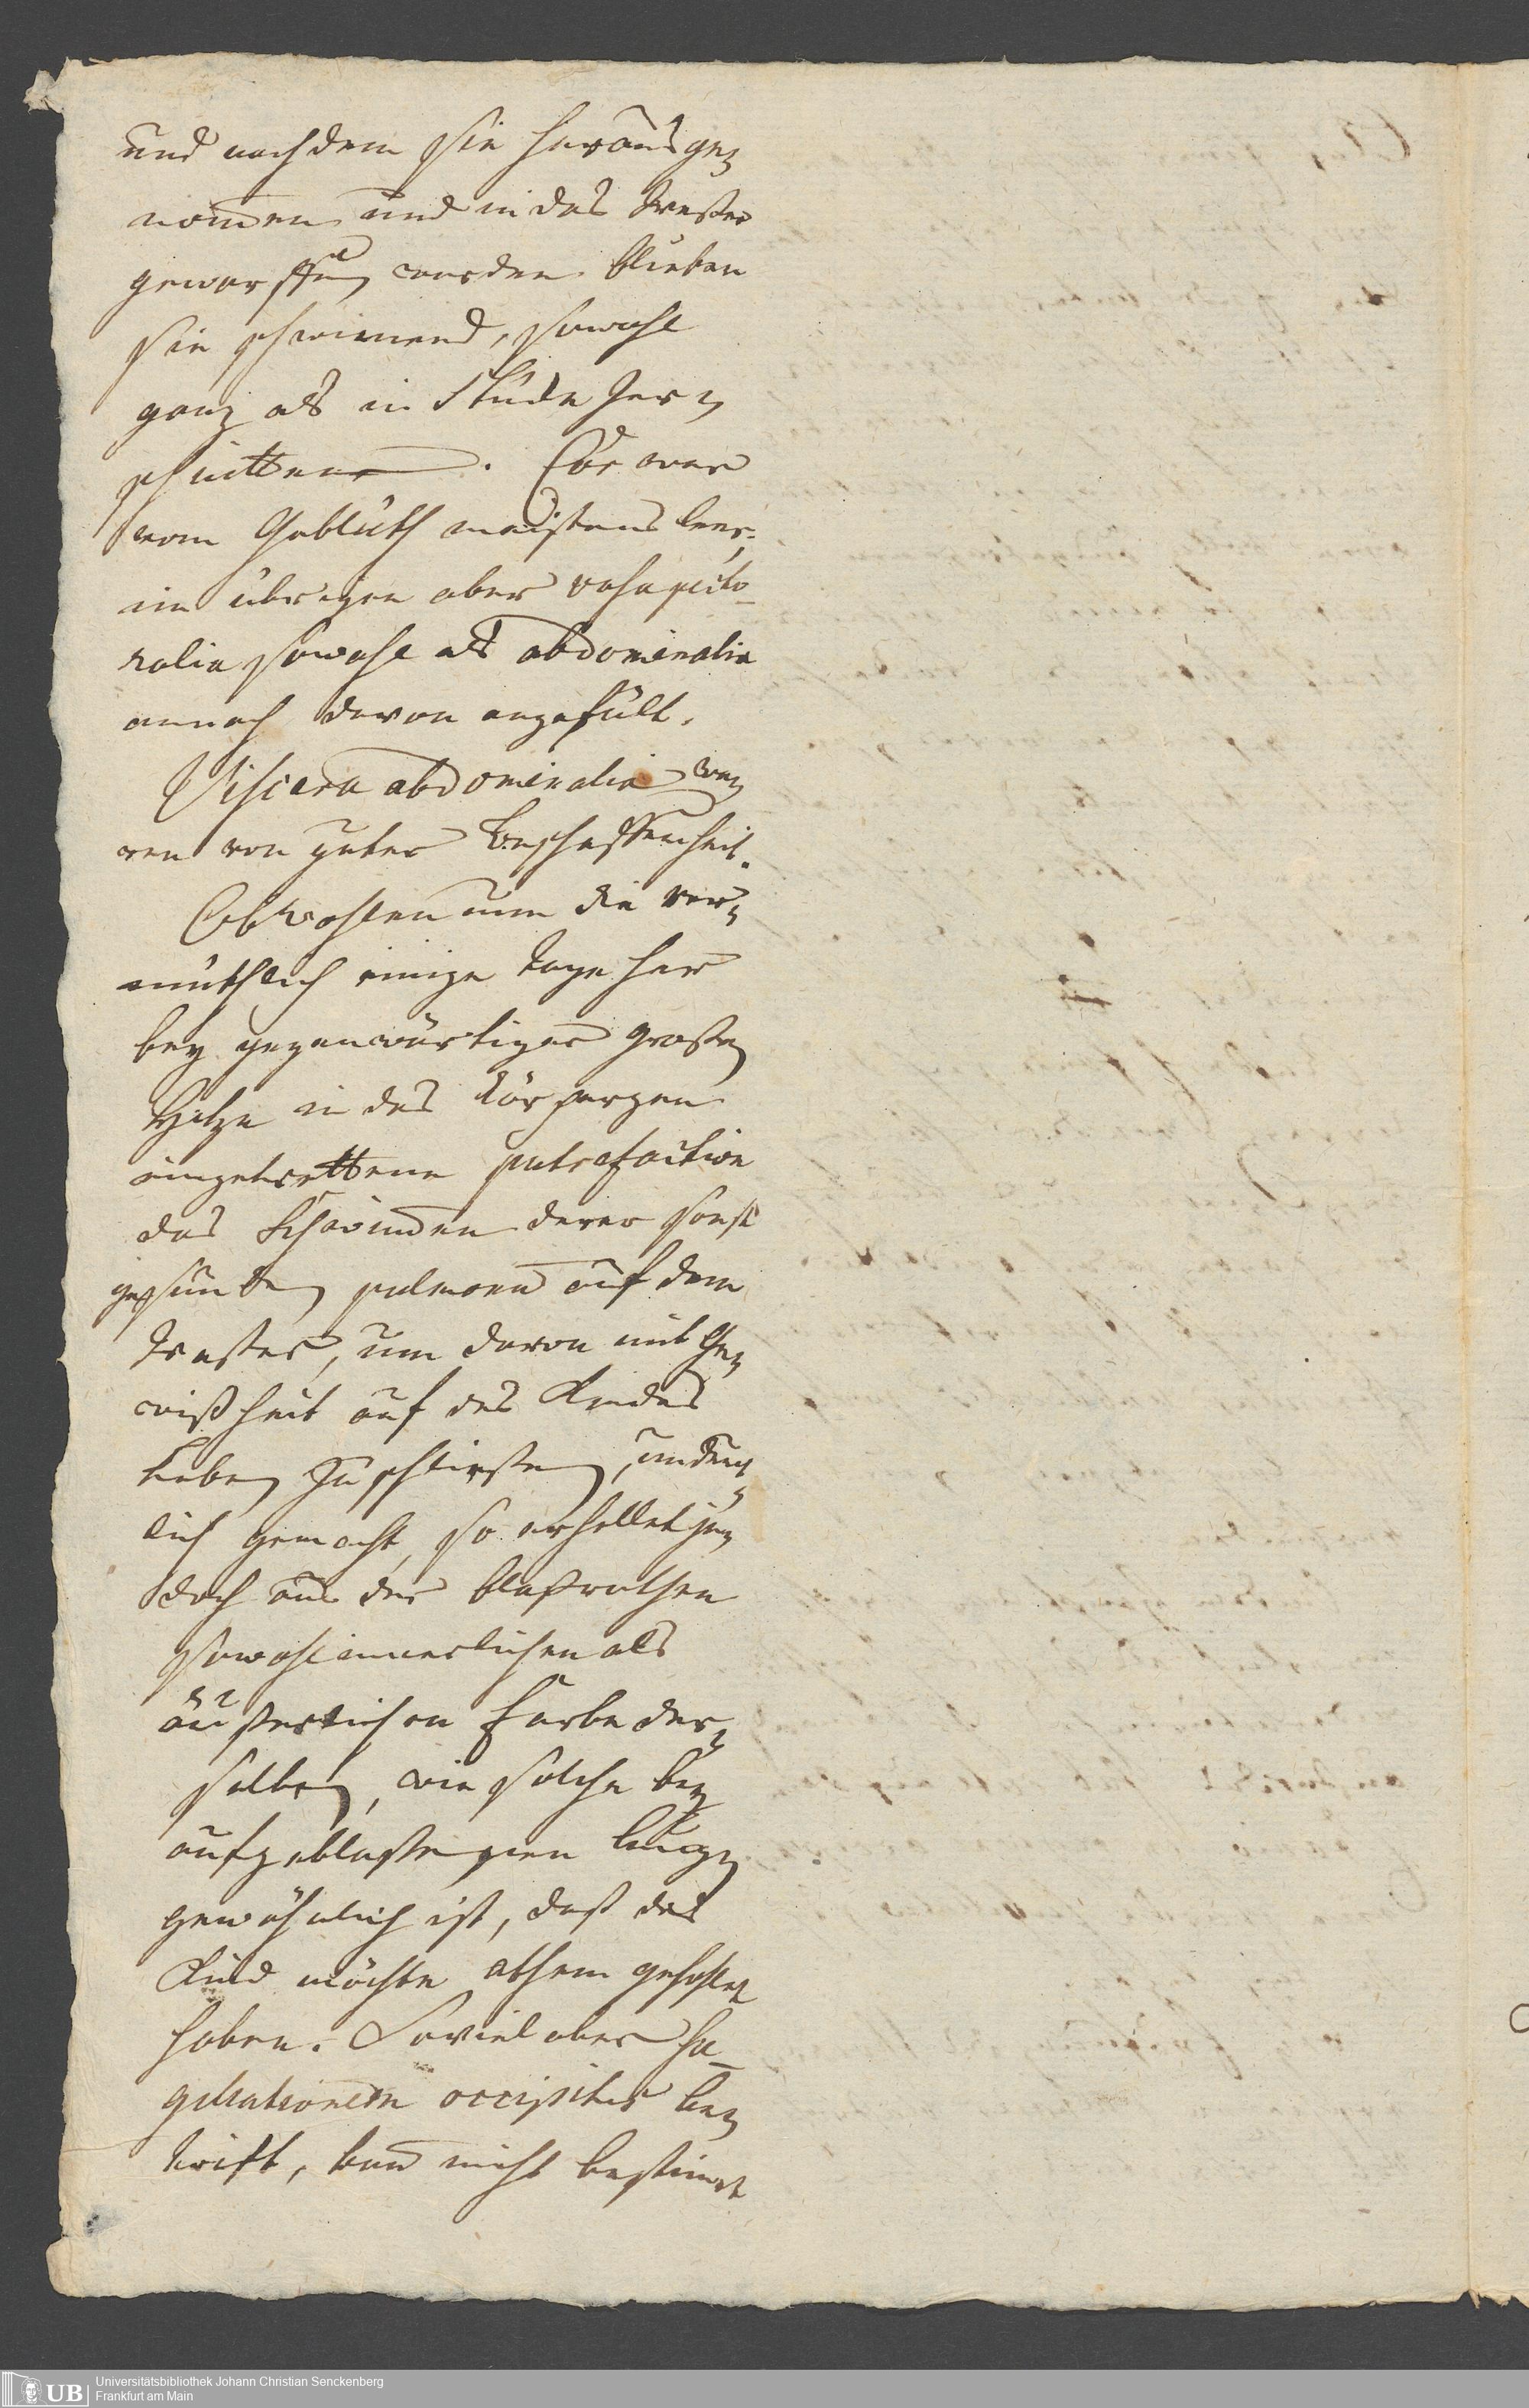 und nachdem sie herausge⸗
nom̄en und in das Wasser
geworffen worden blieben
sie schwim̄end, sowohl
ganz als in Stücke zer⸗
schnitten. Cor war
vom Geblüth meistens leer,
im übrigen aber vasa pecto⸗
ralia sowohl als abdominalia
annoch davon angefüllt.
Viscera abdominalia wa⸗
ren von guter Beschaffenheit.
Obwohlen nun die ver⸗
muthlich einige Tage her
bey gegenwärtiger großen
Hitze in das Körpergen
eingetrettene putrefaction
das Schwim̄en derer sonst
gesunden pulmonum auf dem
Wasser, um davon mit Ge⸗
wißheit auf des Kindes
Leben zu schließen, undeut⸗
lich gemacht, so erhellet je⸗
doch aus der blaßrothen
sowohl innerlichen als
äußerlichen Farbe der⸗
selben, wie solche bey
aufgeblassenen Lungen
gewöhnlich ist, daß das
Kind möchte athem gehohlet
haben. Soviel aber
occipitis be⸗
trift, kan nicht bestim̄t
Universitätsbibliothek Johann Christian Senckenberg
Frankfurt am Main
UB